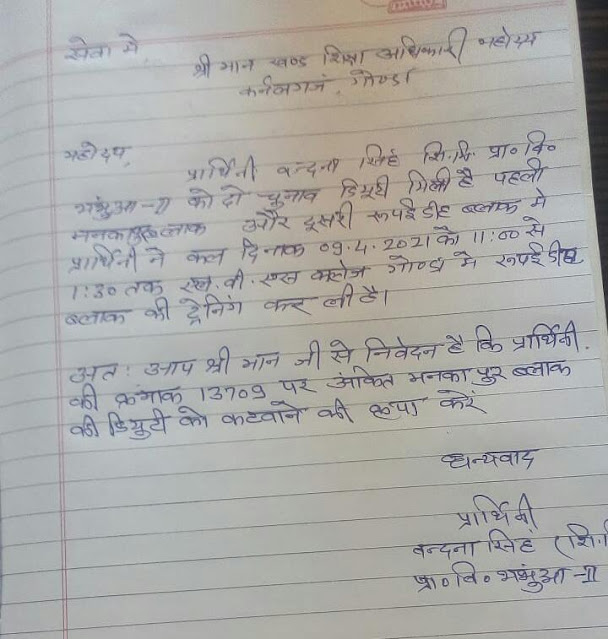 सेवा मे,
श्री मान खण्ड शिक्षा अधिकारी महोदय
कर्नलगजं, गोण्डा
महोदय,
प्रार्थिनी वन्दना सिहं शि.मि. प्रा० वि०
भभुंआ-II को दो चुनाव डियूटी मिली है पहली
मनकापुर ब्लाक और दूसरी रूपईडीह ब्लाक मे
प्रार्थिनी ने कल दिनाक 09.4.2021 को 11:00 से
1:30 तक एल. वी. एस कालेज गोण्डा मे रूपईडीह
ब्लाक की ट्रेनिंग कर ली है।
अत: आप श्री मान जी से निवेदन है कि प्रार्थिनी
की क्रमांक 13709 पर अंकित मनकापुर ब्लाक
की डियुटी को कटवाने की कृपा करें
धन्यवाद
प्रार्थिनी
वन्दना सिहं (शि.
प्रा० वि० भभुंआ-II